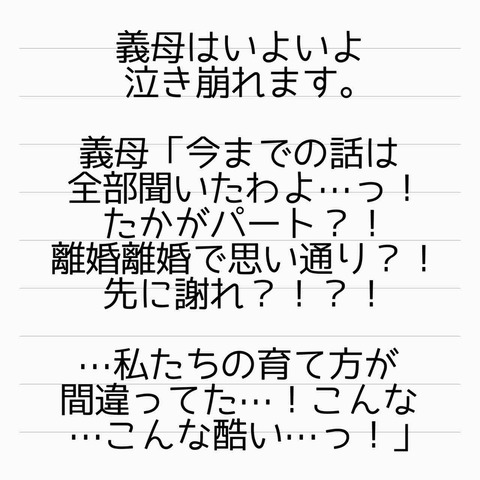 義母はいよいよ
泣き崩れます。
義母「今までの話は
全部聞いたわよ…っ！
たかがパート？！
離婚離婚で思い通り？！
先に謝れ？！？！
…私たちの育て方が
間違ってた…！こんな
…こんな酷い…っ！」